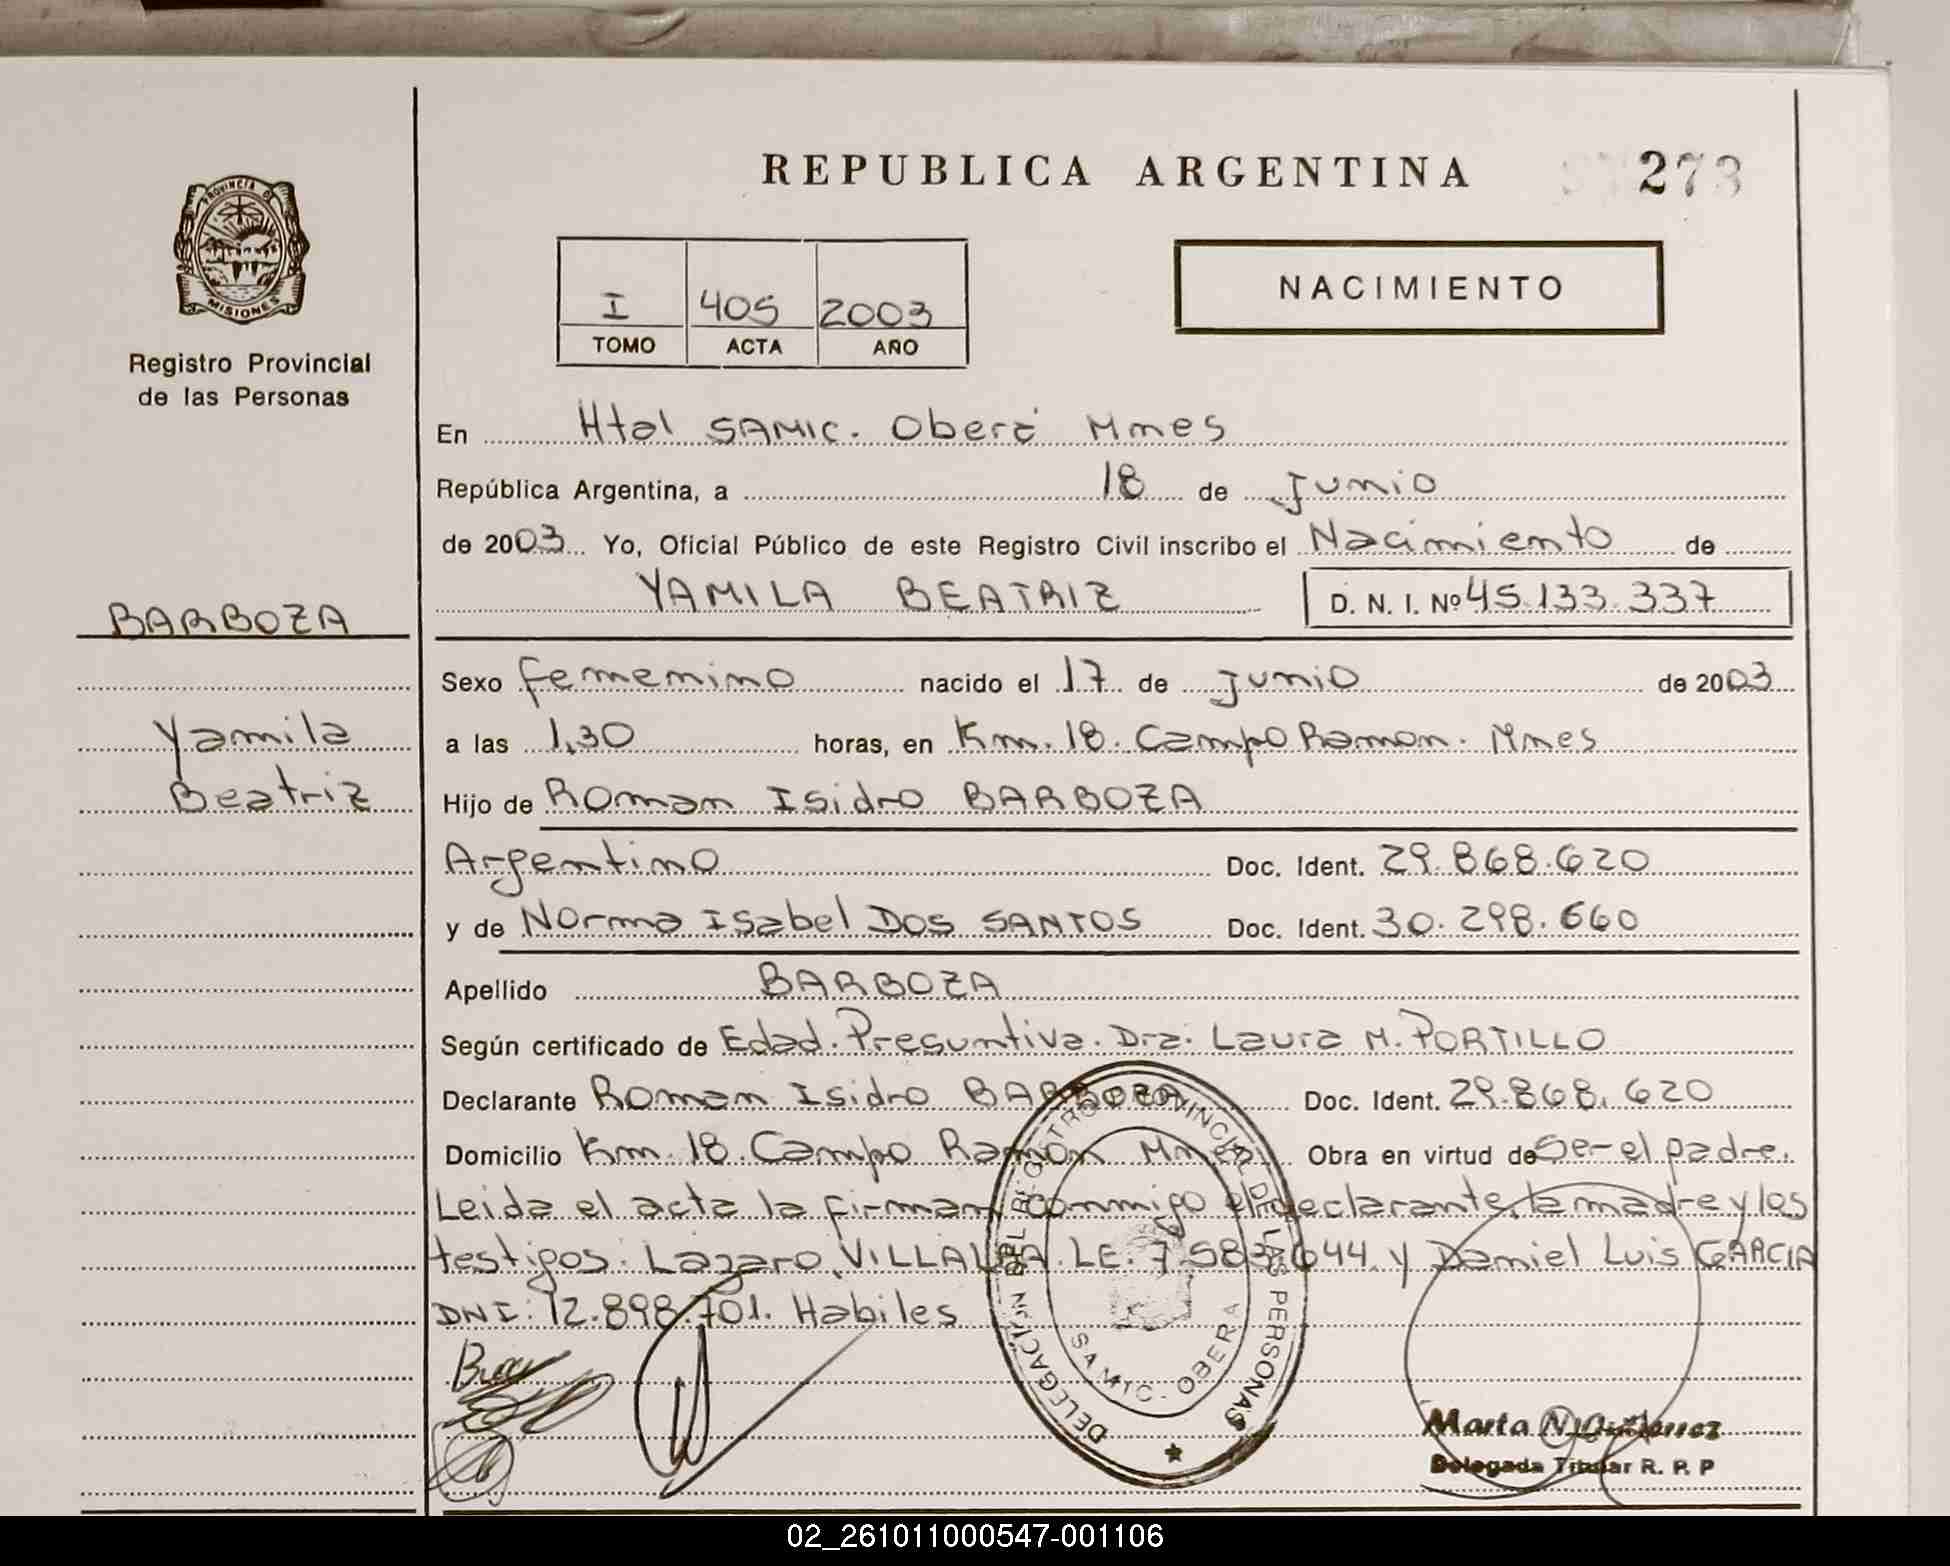 REPUBLICA ARGENTINA
273
PROVINCIA DE
MISIONES
Registro Provincial
de las Personas
I 405 2003
TOMO ACTA AÑO
NACIMIENTO
En Htal SAMIC. Oberá Mnes
República Argentina, a 18 de Junio
de 2003 Yo, Oficial Público de este Registro Civil inscribo el Nacimiento de
YAMILA BEATRIZ D. N. I. Nº 45.133.337
BARBOZA
Yamila
Beatriz
Sexo femenino nacido el 17 de Junio de 2003
a las 1,30 horas, en Km. 18. Campo Ramon. Mnes
Hijo de Roman Isidro BARBOZA
Argentino Doc. Ident. 29.868.620
y de Norma Isabel DOS SANTOS Doc. Ident. 30.298.660
Apellido BARBOZA
Según certificado de Edad. Presuntiva. Dra. Laura M. PORTILLO
Declarante Roman Isidro BARBOZA Doc. Ident. 29.868.620
Domicilio Km. 18. Campo Ramon Mnes. Obra en virtud de Ser el padre.
Leida el acta la firman conmigo el declarante, la madre y los
testigos: Lazaro VILLALBA LE. 7.583.644 y Daniel Luis GARCIA
DNI: 12.898.701. Habiles
DELEGACION DEL REGISTRO PROVINCIAL DE LAS PERSONAS
SAMIC - OBERA
Marta N. Gutierrez
Delegada Titular R. P. P
02_261011000547-001106